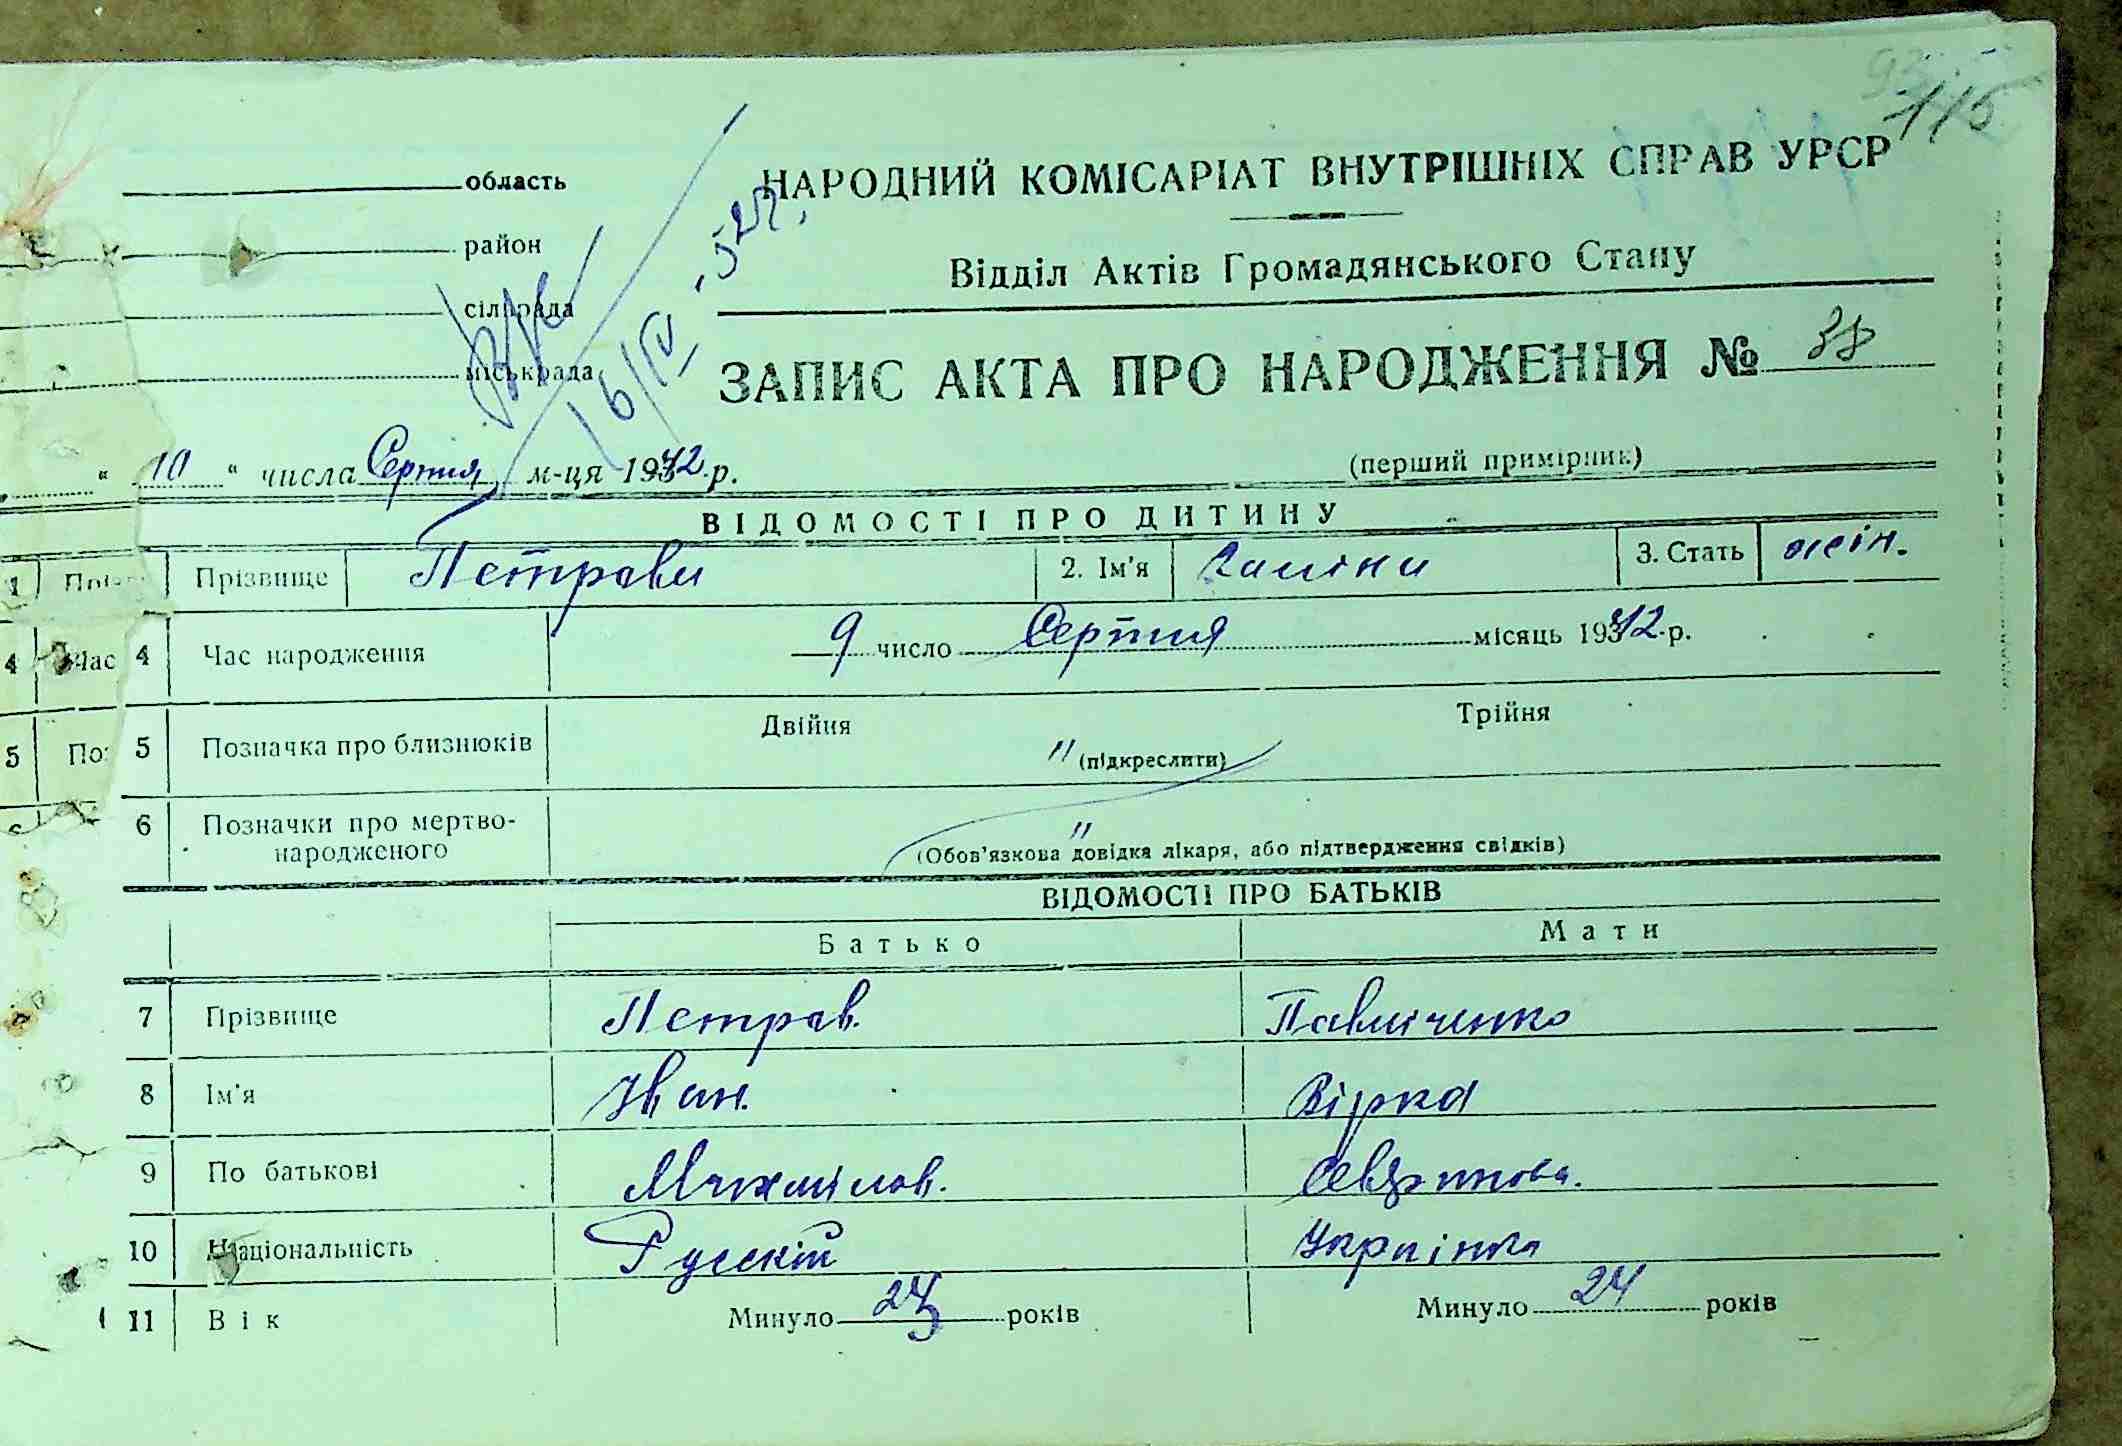 115
область
НАРОДНИЙ КОМІСАРІАТ ВНУТРІШНІХ СПРАВ УРСР
район
Відділ Актів Громадянського Стану
сільрада
16/IV-52р.
міськрада
ЗАПИС АКТА ПРО НАРОДЖЕННЯ № 38
" 10 " числа Серпня м-ця 1942 р.
(перший примірник)
ВІДОМОСТІ ПРО ДИТИНУ
1 Прізвище Петрови 2. Ім'я Галіни 3. Стать жін.
4 Час 4 Час народження 9 число Серпня місяць 1942 р.
5 По 5 Позначка про близнюків Двійня Трійня
" (підкреслити)
6 Позначки про мертво-
народженого
"
(Обов'язкова довідка лікаря, або підтвердження свідків)
ВІДОМОСТІ ПРО БАТЬКІВ
Батько Мати
7 Прізвище Петров. Павліченко
8 Ім'я Іван. Вірка
9 По батькові Михайлов.
10 Національність Русскій Українка
11 Вік Минуло років Минуло 24 років